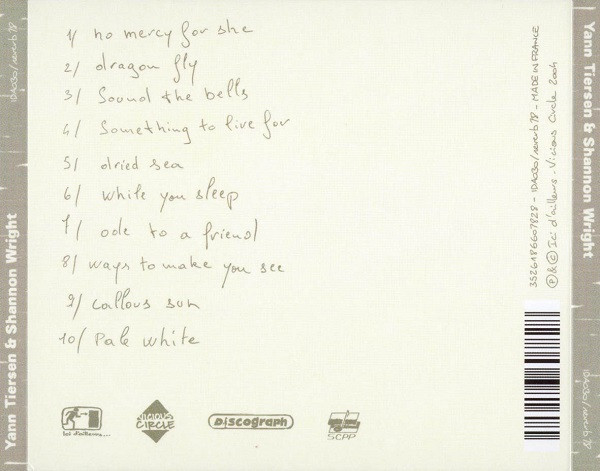 Yann Tiersen & Shannon Wright
IDA030/reverb 78
1/ no mercy for she
2/ dragon fly
3/ Sound the bells
4/ Something to live for
5/ dried sea
6/ while you sleep
7/ ode to a friend
8/ ways to make you see
9/ callous sun
10/ Pale white
ici d'ailleurs...
VICIOUS CIRCLE
DISCOGRAPH
SCPP
3526186607828 - IDA030/reverb 78 - MADE IN FRANCE
℗ & © Ici d'ailleurs - Vicious Circle 2004
Yann Tiersen & Shannon Wright
IDA030/reverb 78